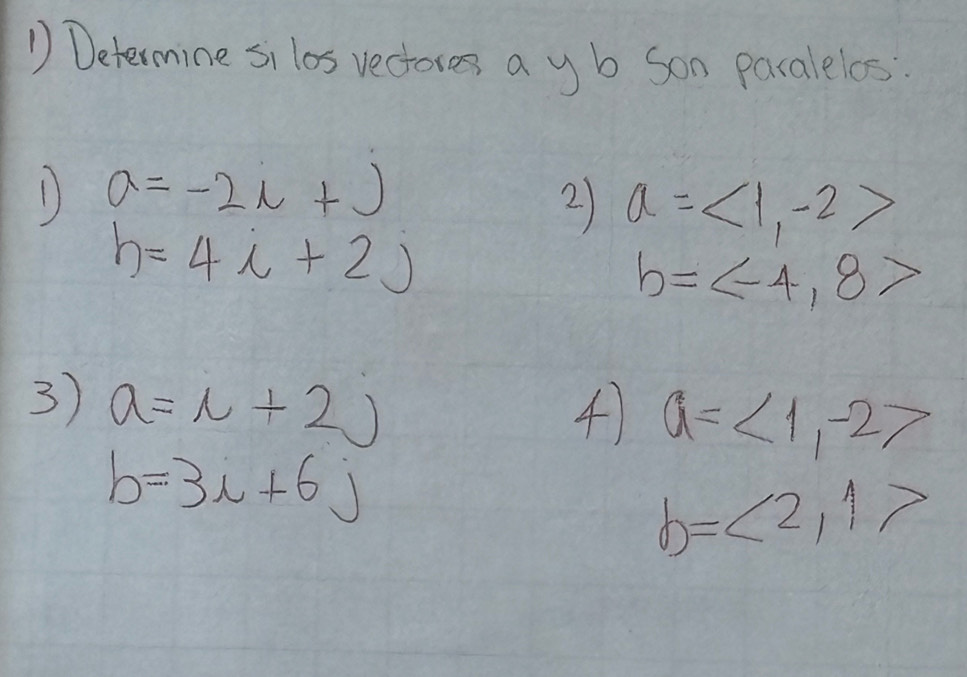 1) Determine si los vectores a y b son paralelos:
1) a = -2i + j
b = 4i + 2j
2) a = <1, -2>
b = <-4, 8>
3) a = i + 2j
b = 3i + 6j
4) a = <1, -2>
b = <2, 1>